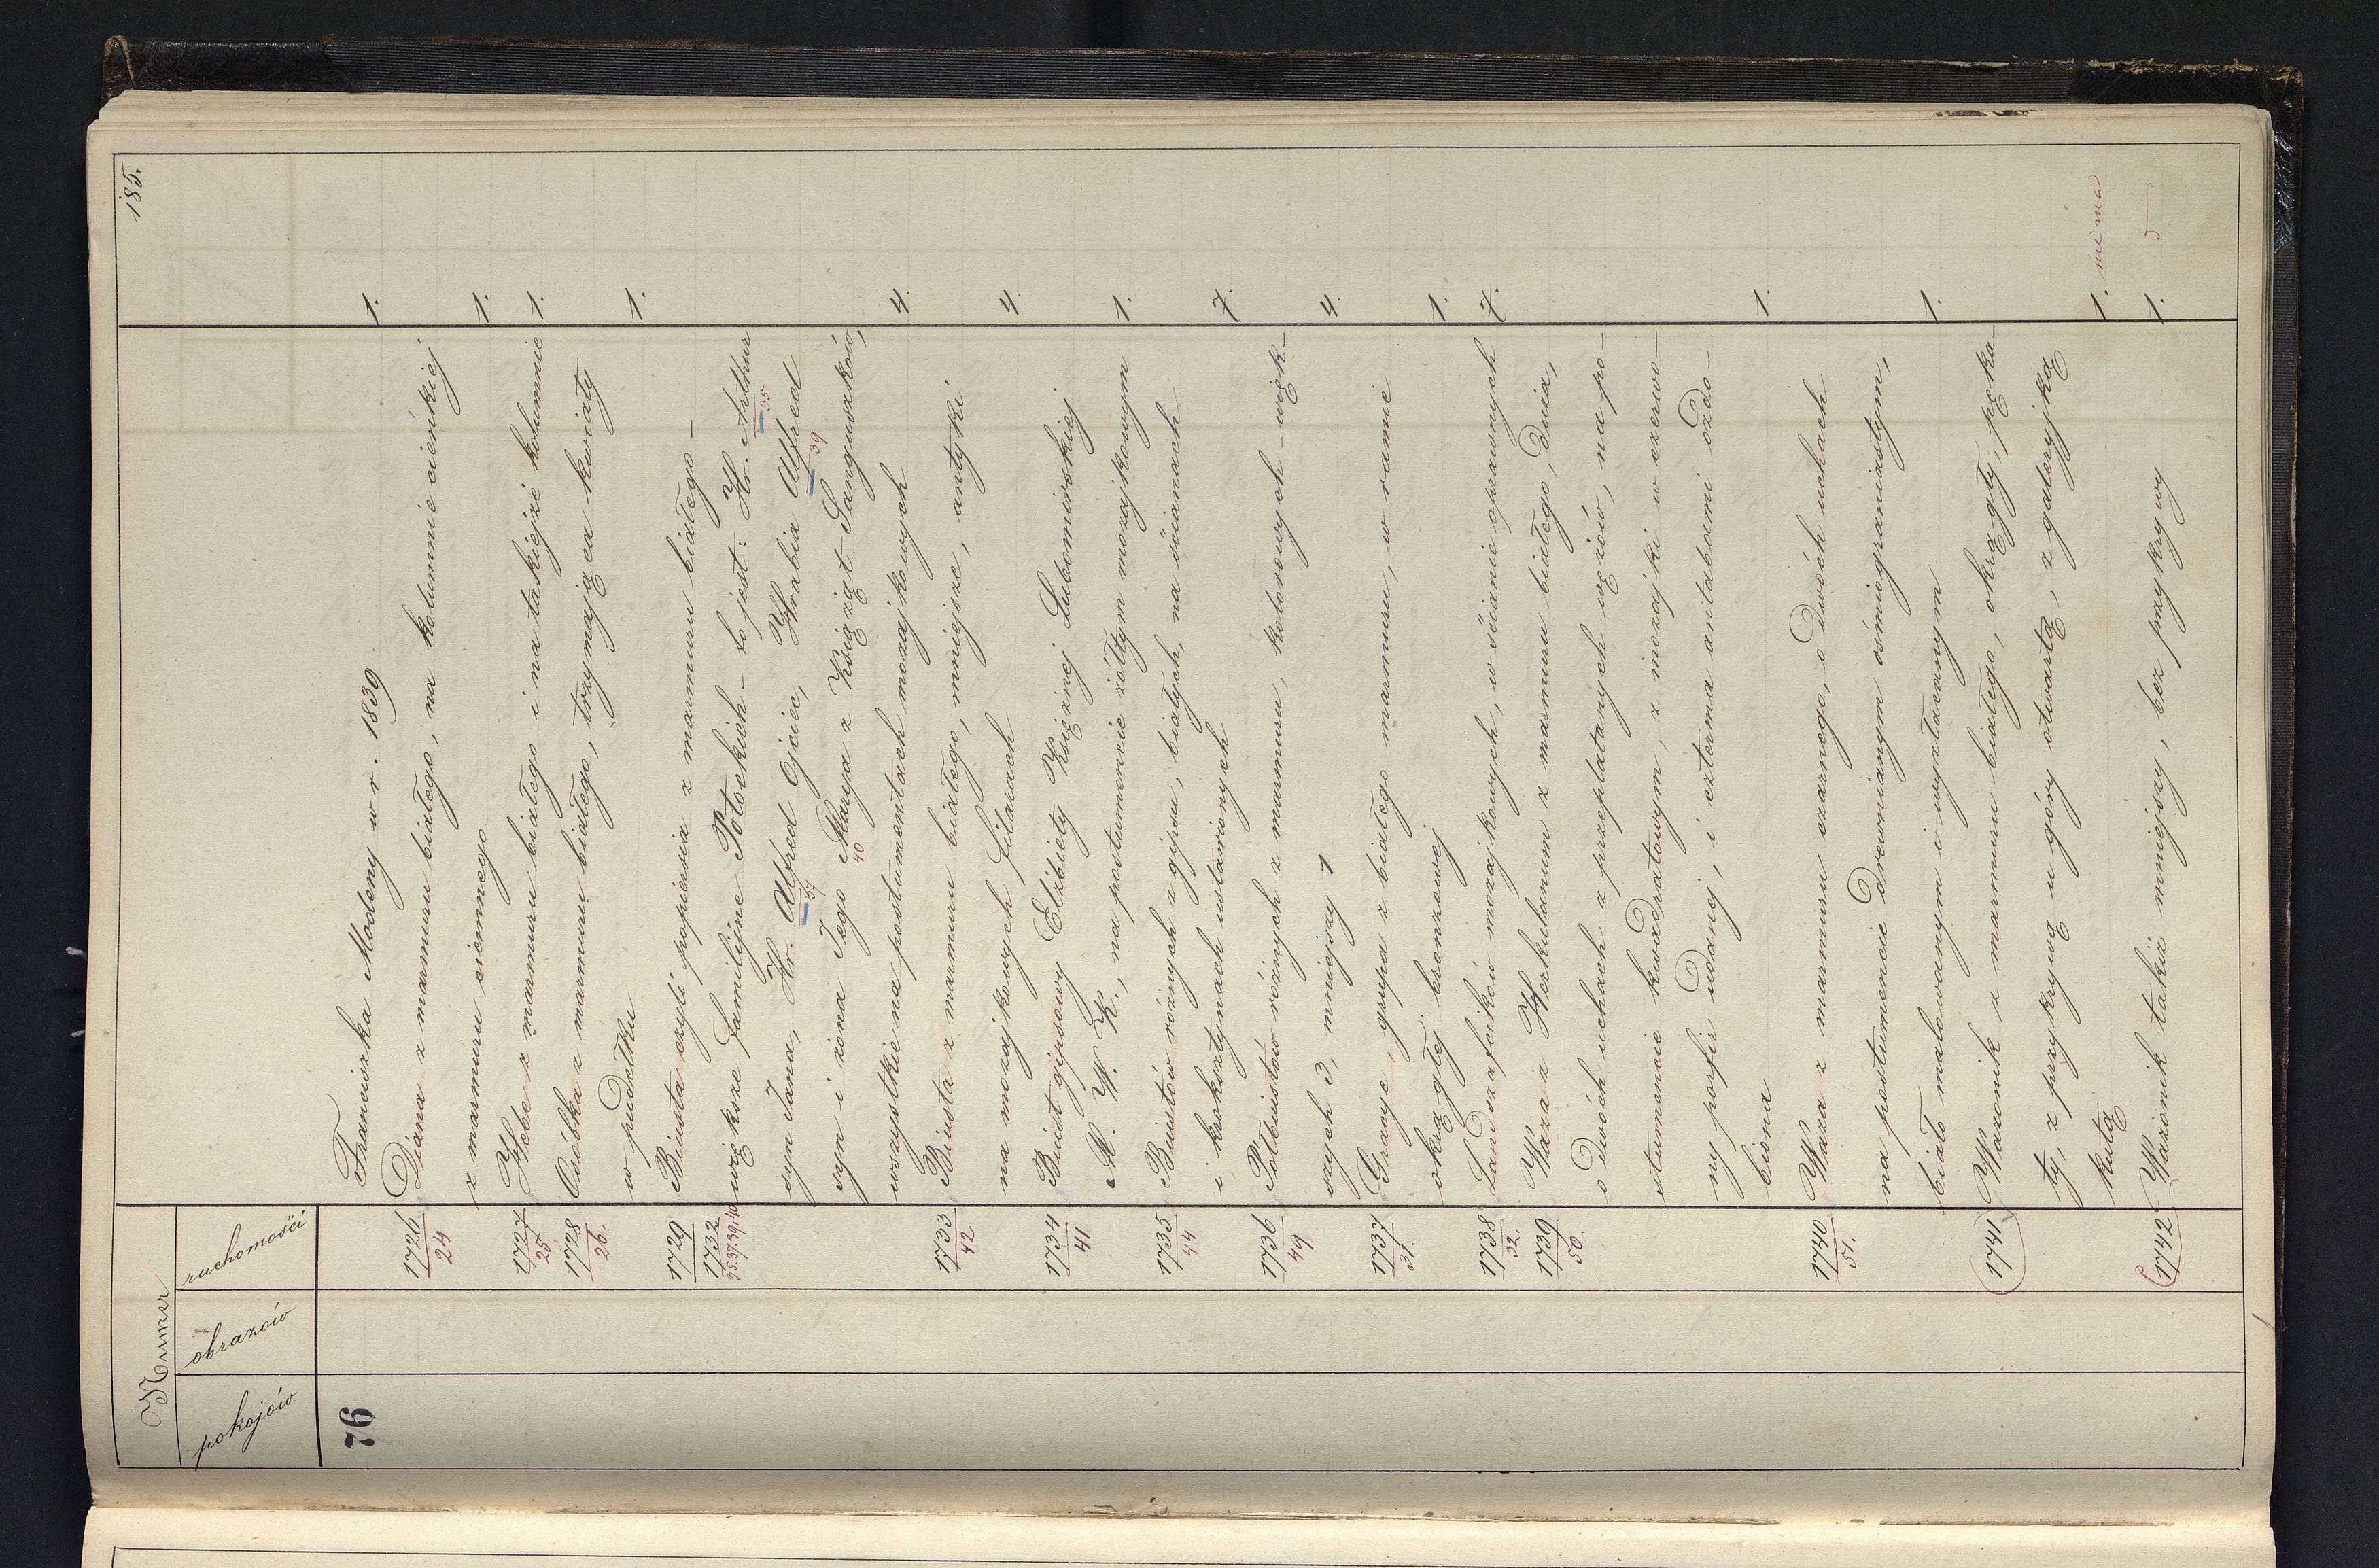 185.
Numer
pokojów obrazów ruchomości
76 Franciszka Modeny w r. 1839 1.
1726 Diana z marmuru białego, na kolumnie cienkiéj
24 z marmuru ciemnego 1.
1727 Hebe z marmuru białego i na takiejże kolumnie 1.
25
1728 Osóbka z marmuru białego, trzymająca kwiaty
26. w pudełku 1.
1729 Biusta czyli popiersia z marmuru białego –
1732 większe familijne Potockich – to jest: Hr. Arthur
35.37.39.40 35
syn Jana, Hr. Alfred Ojciec, Hrabia Alfred
37 39
syn i żona Jego Marya z Książąt Sanguszków,
40
wszystkie na postumentach mozajkowych 4.
1733 Biusta z marmuru białego, mniejsze, antyki
42 na mozajkowych filarach 4.
1734 Biust gipsowy Elżbiety Księżnej Lubomirskiej
41 M. W. K., na postumencie żółtym mozajkowym 1.
1735 Biustów różnych z gipsu, białych, na ścianach
44 i kroksztynach ustawionych 7.
1736 Półbiustów różnych z marmuru, kolorowych – więk–
49 szych 3, mniejszy 1 4.
1737 Gracye, grupa z białego marmuru, w ramie
31. okrągłej bronzowej 1.
1738 Landszafcików mozajkowych, w ścianie oprawnych 7.
32.
1739 Waza z Herkulanum z marmuru białego, duża,
50. o dwóch uchach z przeplatanych wężów, na po–
stumencie kwadratowym, z mozajki w czerwo–
ny porfir udanej, i czterma antabami ozdo–
biona 1.
1740 Waza z marmuru czarnego, o dwóch uchach
51. na postumencie drewnianym ośmiograniastym,
biało malowanym i wyzłacanym 1.
1741 Wazonik z marmuru białego, okrągły, pęka–
ty, z przykrywą u góry otwartą, z galeryjką
kutą 1. nie ma
1742 Wazonik takiż mniejszy, bez przykrywy 1.